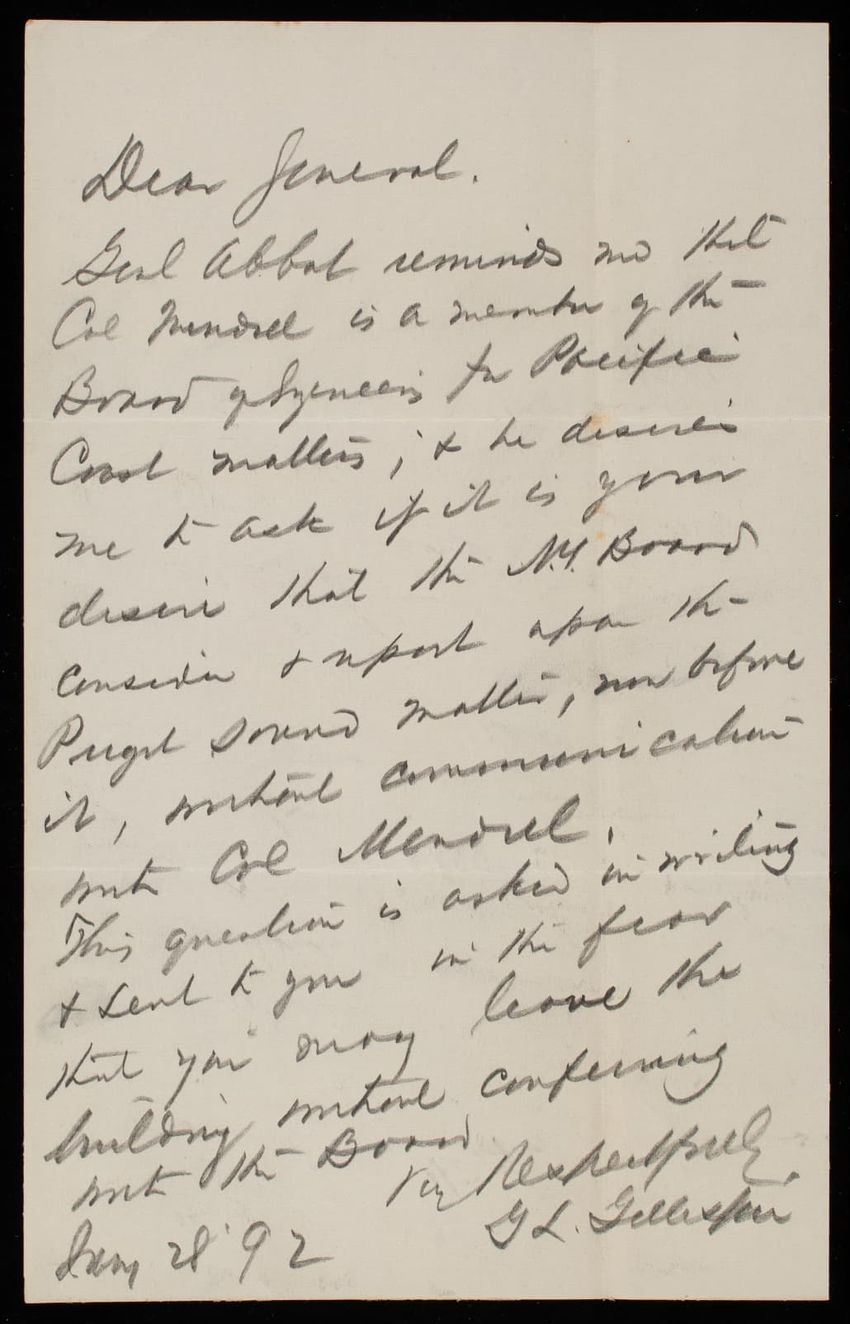 Dear General.
Genl Abbot reminds me that
Col Mendell is a member of the
Board of Engineers for Pacific
Coast matters; & he desires
me to ask if it is your
desire that the N.Y. Board
consider & report upon the
Puget Sound matter, now before
it, without communication
with Col Mendell.
This question is asked in writing
& sent to you in the fear
that you may leave the
building without conferring
with the Board.
Very Respectfully,
G L. Gillespie
Jany 28 '92